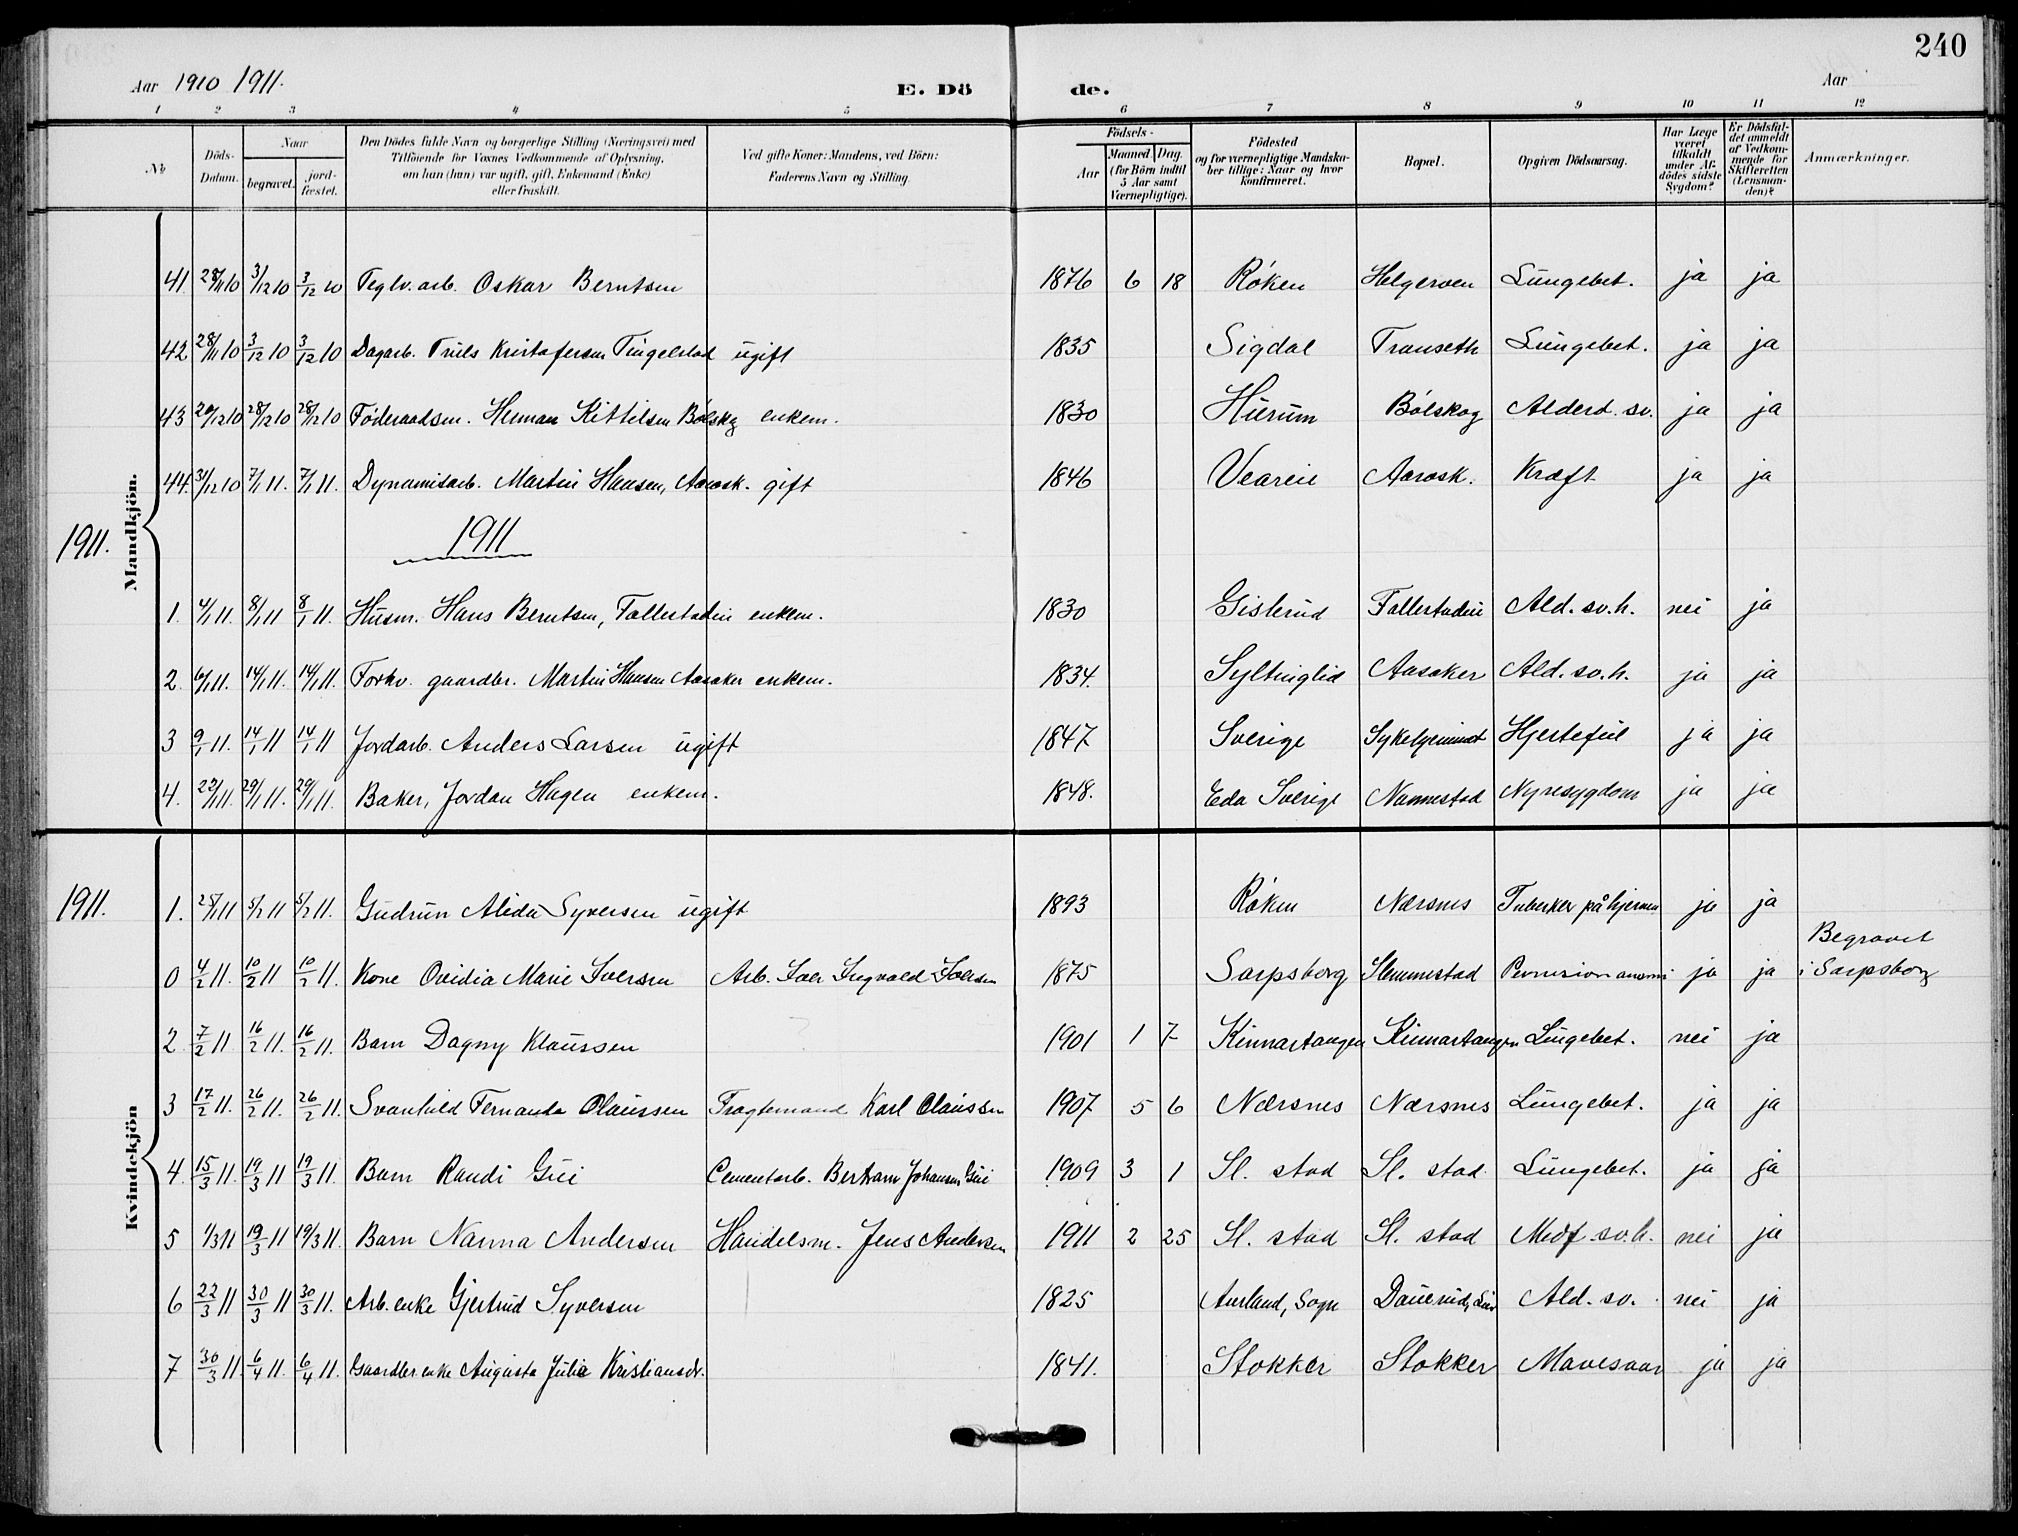 240
Aar 1910 1911. E. Dö de. Aar
1 2 3 4 5 6 7 8 9 10 11 12
No Döds-Datum. Naar begravet. jord-fæstet. Den Dödes fulde Navn og borgerlige Stilling (Næringsvei) med Tilföiende for Voxnes Vedkommende af Oplysning, om han (hun) var ugift, gift, Enkemand (Enke) eller fraskilt. Ved gifte Koner: Mandens, ved Börn: Faderens Navn og Stilling. Födsels- Aar Maaned Dag (for Börn indtil 5 Aar samt Værnepligtige). Födested og for værnepligtige Mandskaber tillige: Naar og hvor konfirmeret. Bopæl. Opgiven Dödsaarsag. Har Læge været tilkaldt under Afdödes sidste Sygdom? Er Dödsfaldet anmeldt af Vedkommende for Skifteretten (Lensmanden)? Anmærkninger.
Mandkjön.
41. 28/11 10 3/12 10 3/12 10 Teglv. arb. Oskar Berntsen 1876 6 18 Røken Helgerven Lungebet. ja ja
42 28/11 10 3/12 10 3/12 10 Dagarb. Truls Kristofersen Tingelstad ugift 1835 Sigdal Transeth Lungebet. ja ja
43 20/12 10 28/12 10 28/12 10 Føderaadsm. Herman Kittilsen Bølskg enkem. 1830 Hurum Bølskog Alderd. sv. ja ja
44. 31/12 10 7/1 11. 7/1 11. Dynamitarb. Martin Hansen, Aarosk. gift 1846 Aarosk. Kræft ja ja
1911.
1911
1. 4/1 11. 8/1 11 8/1 11. Husm. Hans Berntsen, Follestadeie enkem. 1830 Gisterud Follestadeie Ald. sv. h. nei ja
2. 6/1 11. 14/1 11. 14/1 11. Forhv. gaardbr. Martin Hansen Aasaker enkem. 1834. Syltinglid Aasaker Ald. sv. h. ja ja
3 9/1 11. 14/1 11 14/1 11 Jordarb. Anders Larsen ugift 1847 Sverige Hjertefeil ja ja
4. 22/1 11. 29/1 11. 29/1 11. Baker, Jordan Hagen enkem. 1848. Eda Sverige Nannestad Nyresygdom ja ja
1911.
Kvindekjön
1. 25/1 11 5/2 11 5/2 11. Gudrun Alida Syversen ugift 1893 Røken Nærsnes Tuberker på hjernen ja ja
0 4/2 11. 10/2 11. 10/2 11. Kone Ovidia Marie Iversen Arb. Iver Ingvald Iversen 1875 Sarpsborg Slemmestad ja ja Begravet i Sarpsborg
2 7/2 11. 16/2 11. 16/2 11. Barn Dagny Klaussen 1901 1 7 Kinnartangen Kinnartangen Lungebet. nei ja
3 17/2 11. 26/2 11. 26/2 11. Svanhild Fernanda Claussen Fragtemand Karl Claussen 1907 5 6 Nærsnes Nærsnes Lungebet. ja ja
4. 15/3 11. 19/3 11 19/3 11. Barn Randi Gui Cementarb. Bertram Johansen Gui 1909 3 1 Sl. stad Sl. stad Lungebet. ja ja
5 1/3 11 19/3 11 19/3 11. Barn Nanna Andersen Handelsm. Jens Andersen 1911 2 25 Sl. stad Sl. stad Medf. sv. h. nei ja
6 22/3 11 30/3 11 30/3 11. Arb. enke Gjertrud Syversen 1825 Aurland, Sogn Ald. sv. nei ja
7 30/3 11. 6/4 11. 6/4 11. Gaardbr. enke Augusta Julie Kristiansdr. 1841. Stokker Stokker Mavesaar ja ja